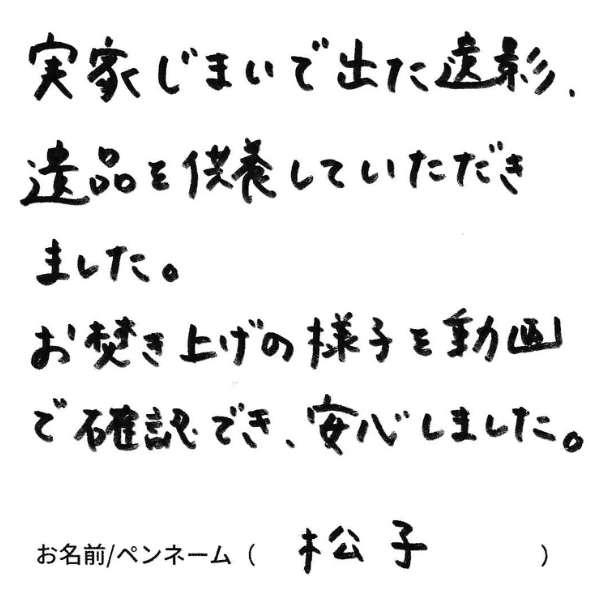 実家じまいで出た遺影、
遺品を供養していただき
ました。
お焚き上げの様子を動画
で確認でき、安心しました。
お名前/ペンネーム（ 松子 ）